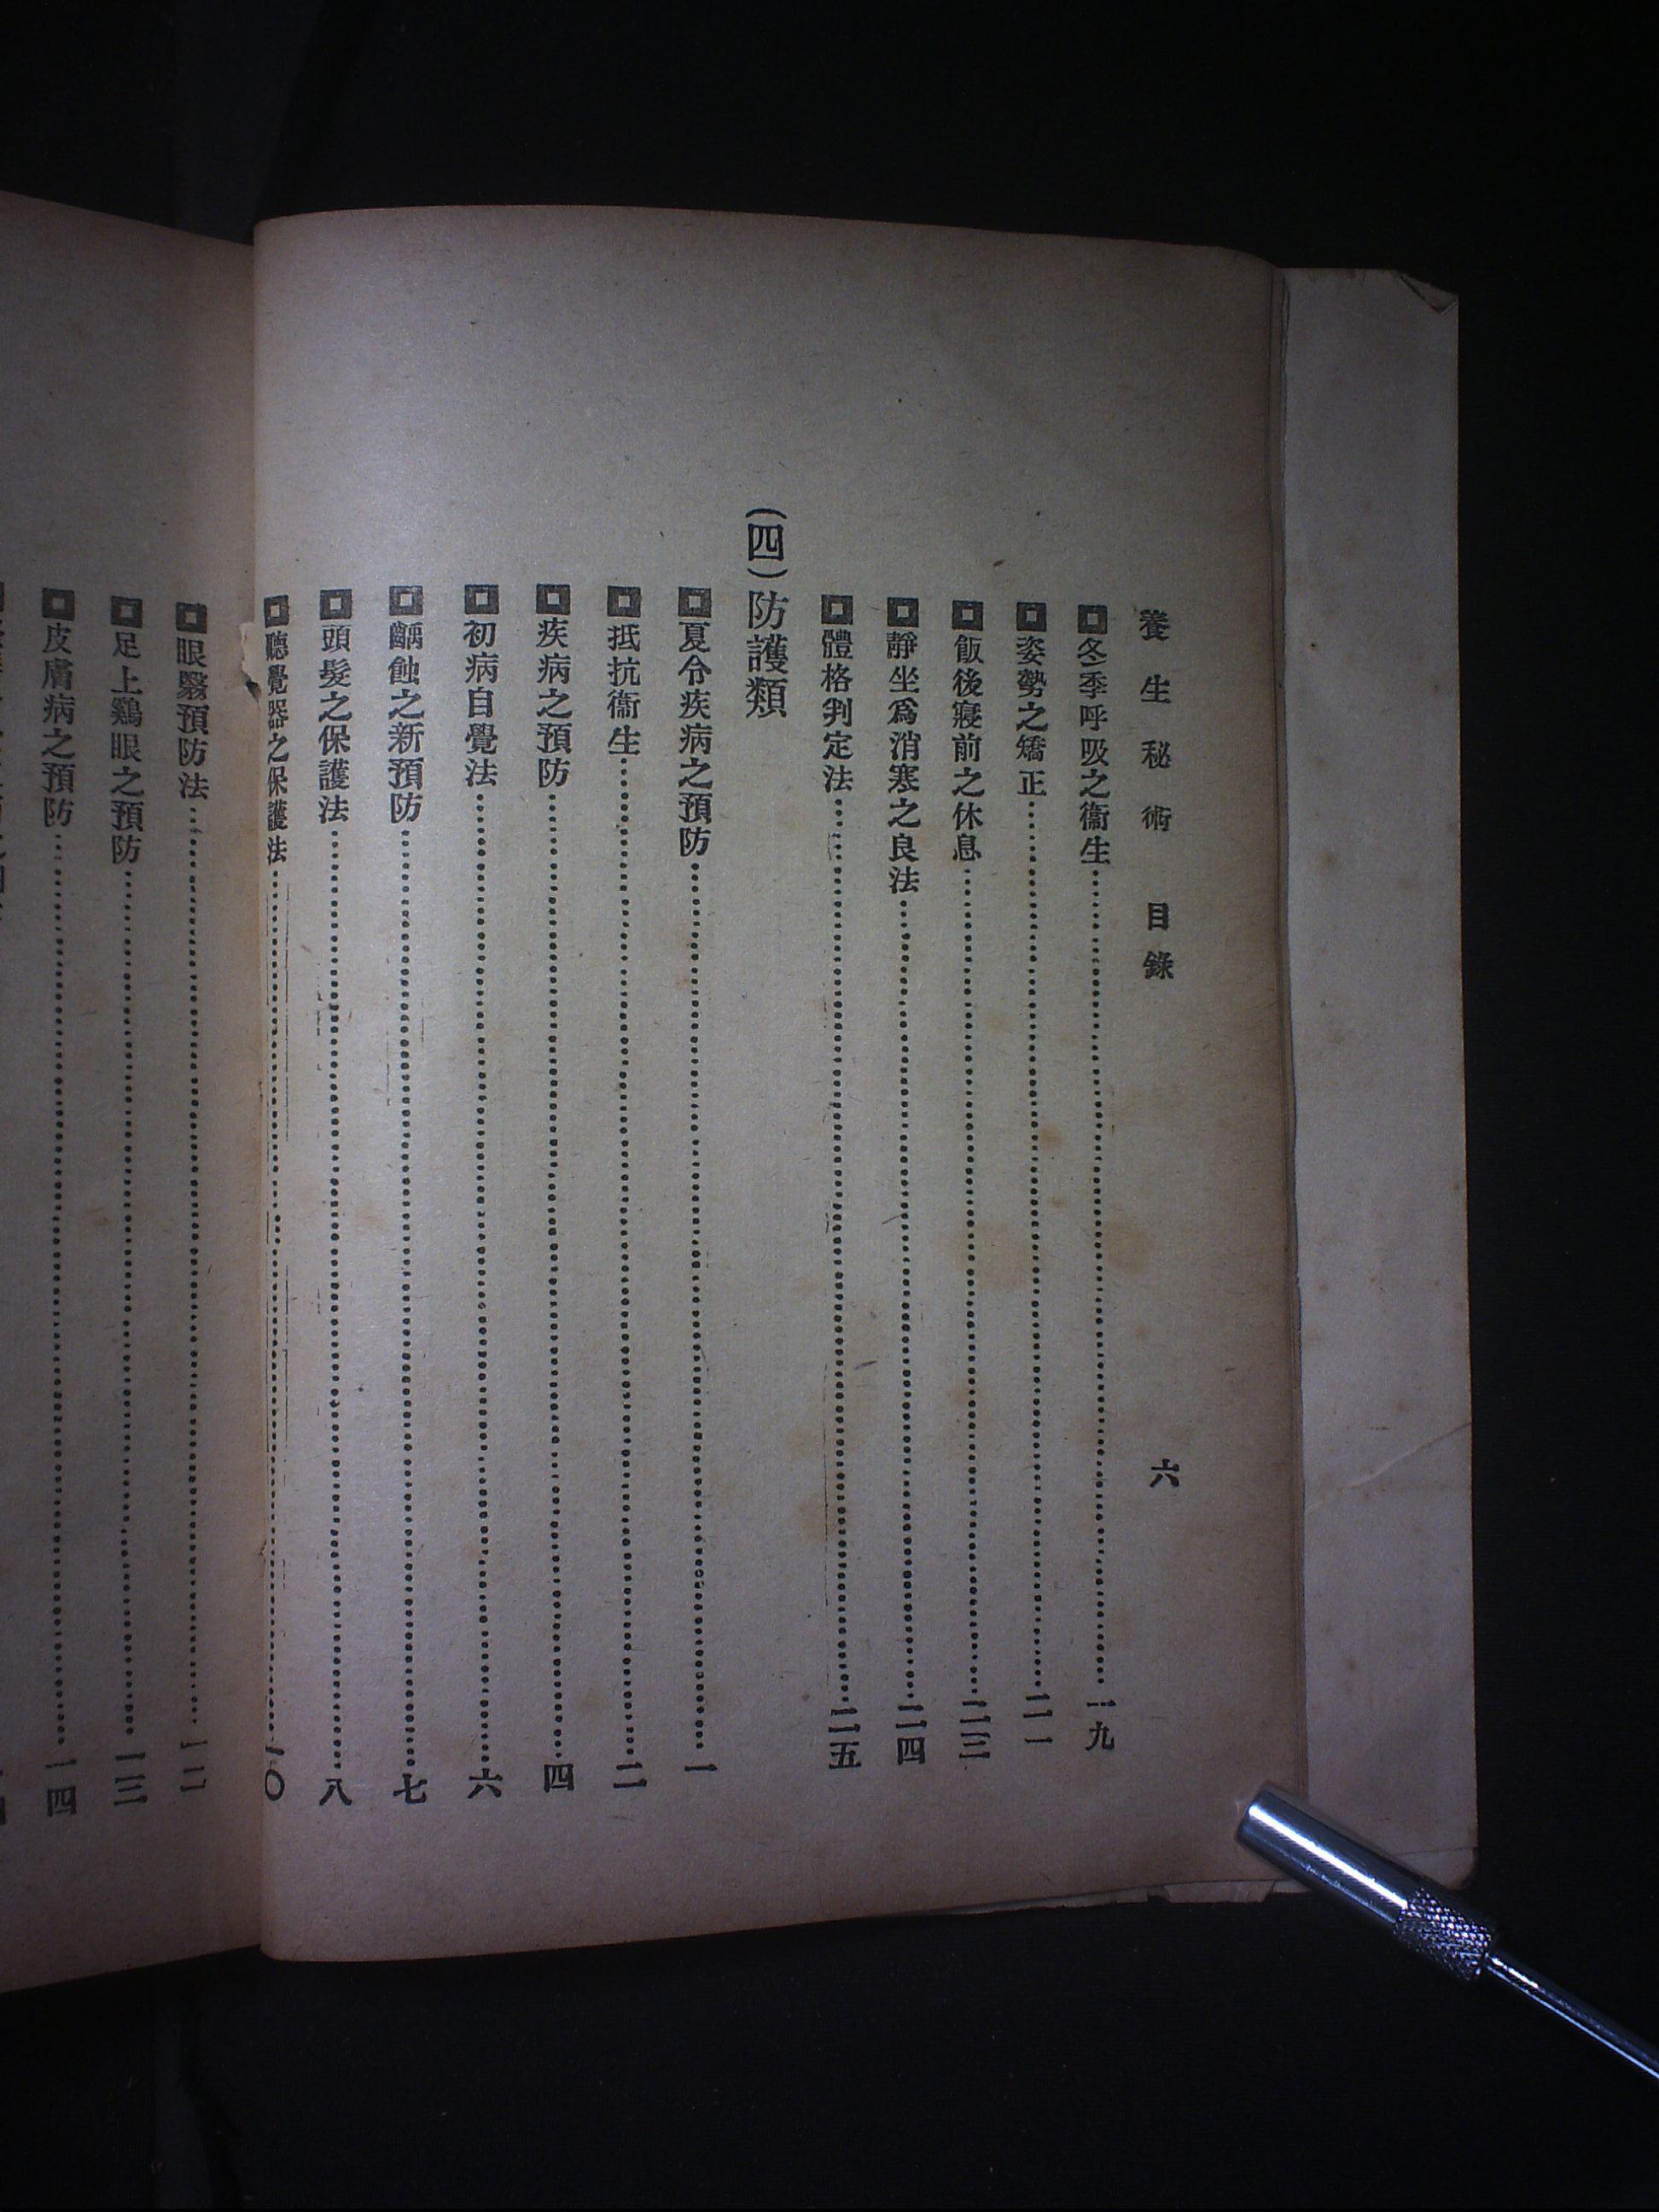 養生秘術　目錄　六
冬季呼吸之衞生……一九
姿勢之矯正……二一
飯後寢前之休息……二三
靜坐爲消寒之良法……二四
體格判定法……二五
(四)防護類
夏令疾病之預防……一
抵抗衞生……二
疾病之預防……四
初病自覺法……六
齲蝕之新預防……七
頭髮之保護法……八
聽覺器之保護法……一〇
眼翳預防法……一二
足上鷄眼之預防……一三
皮膚病之預防……一四